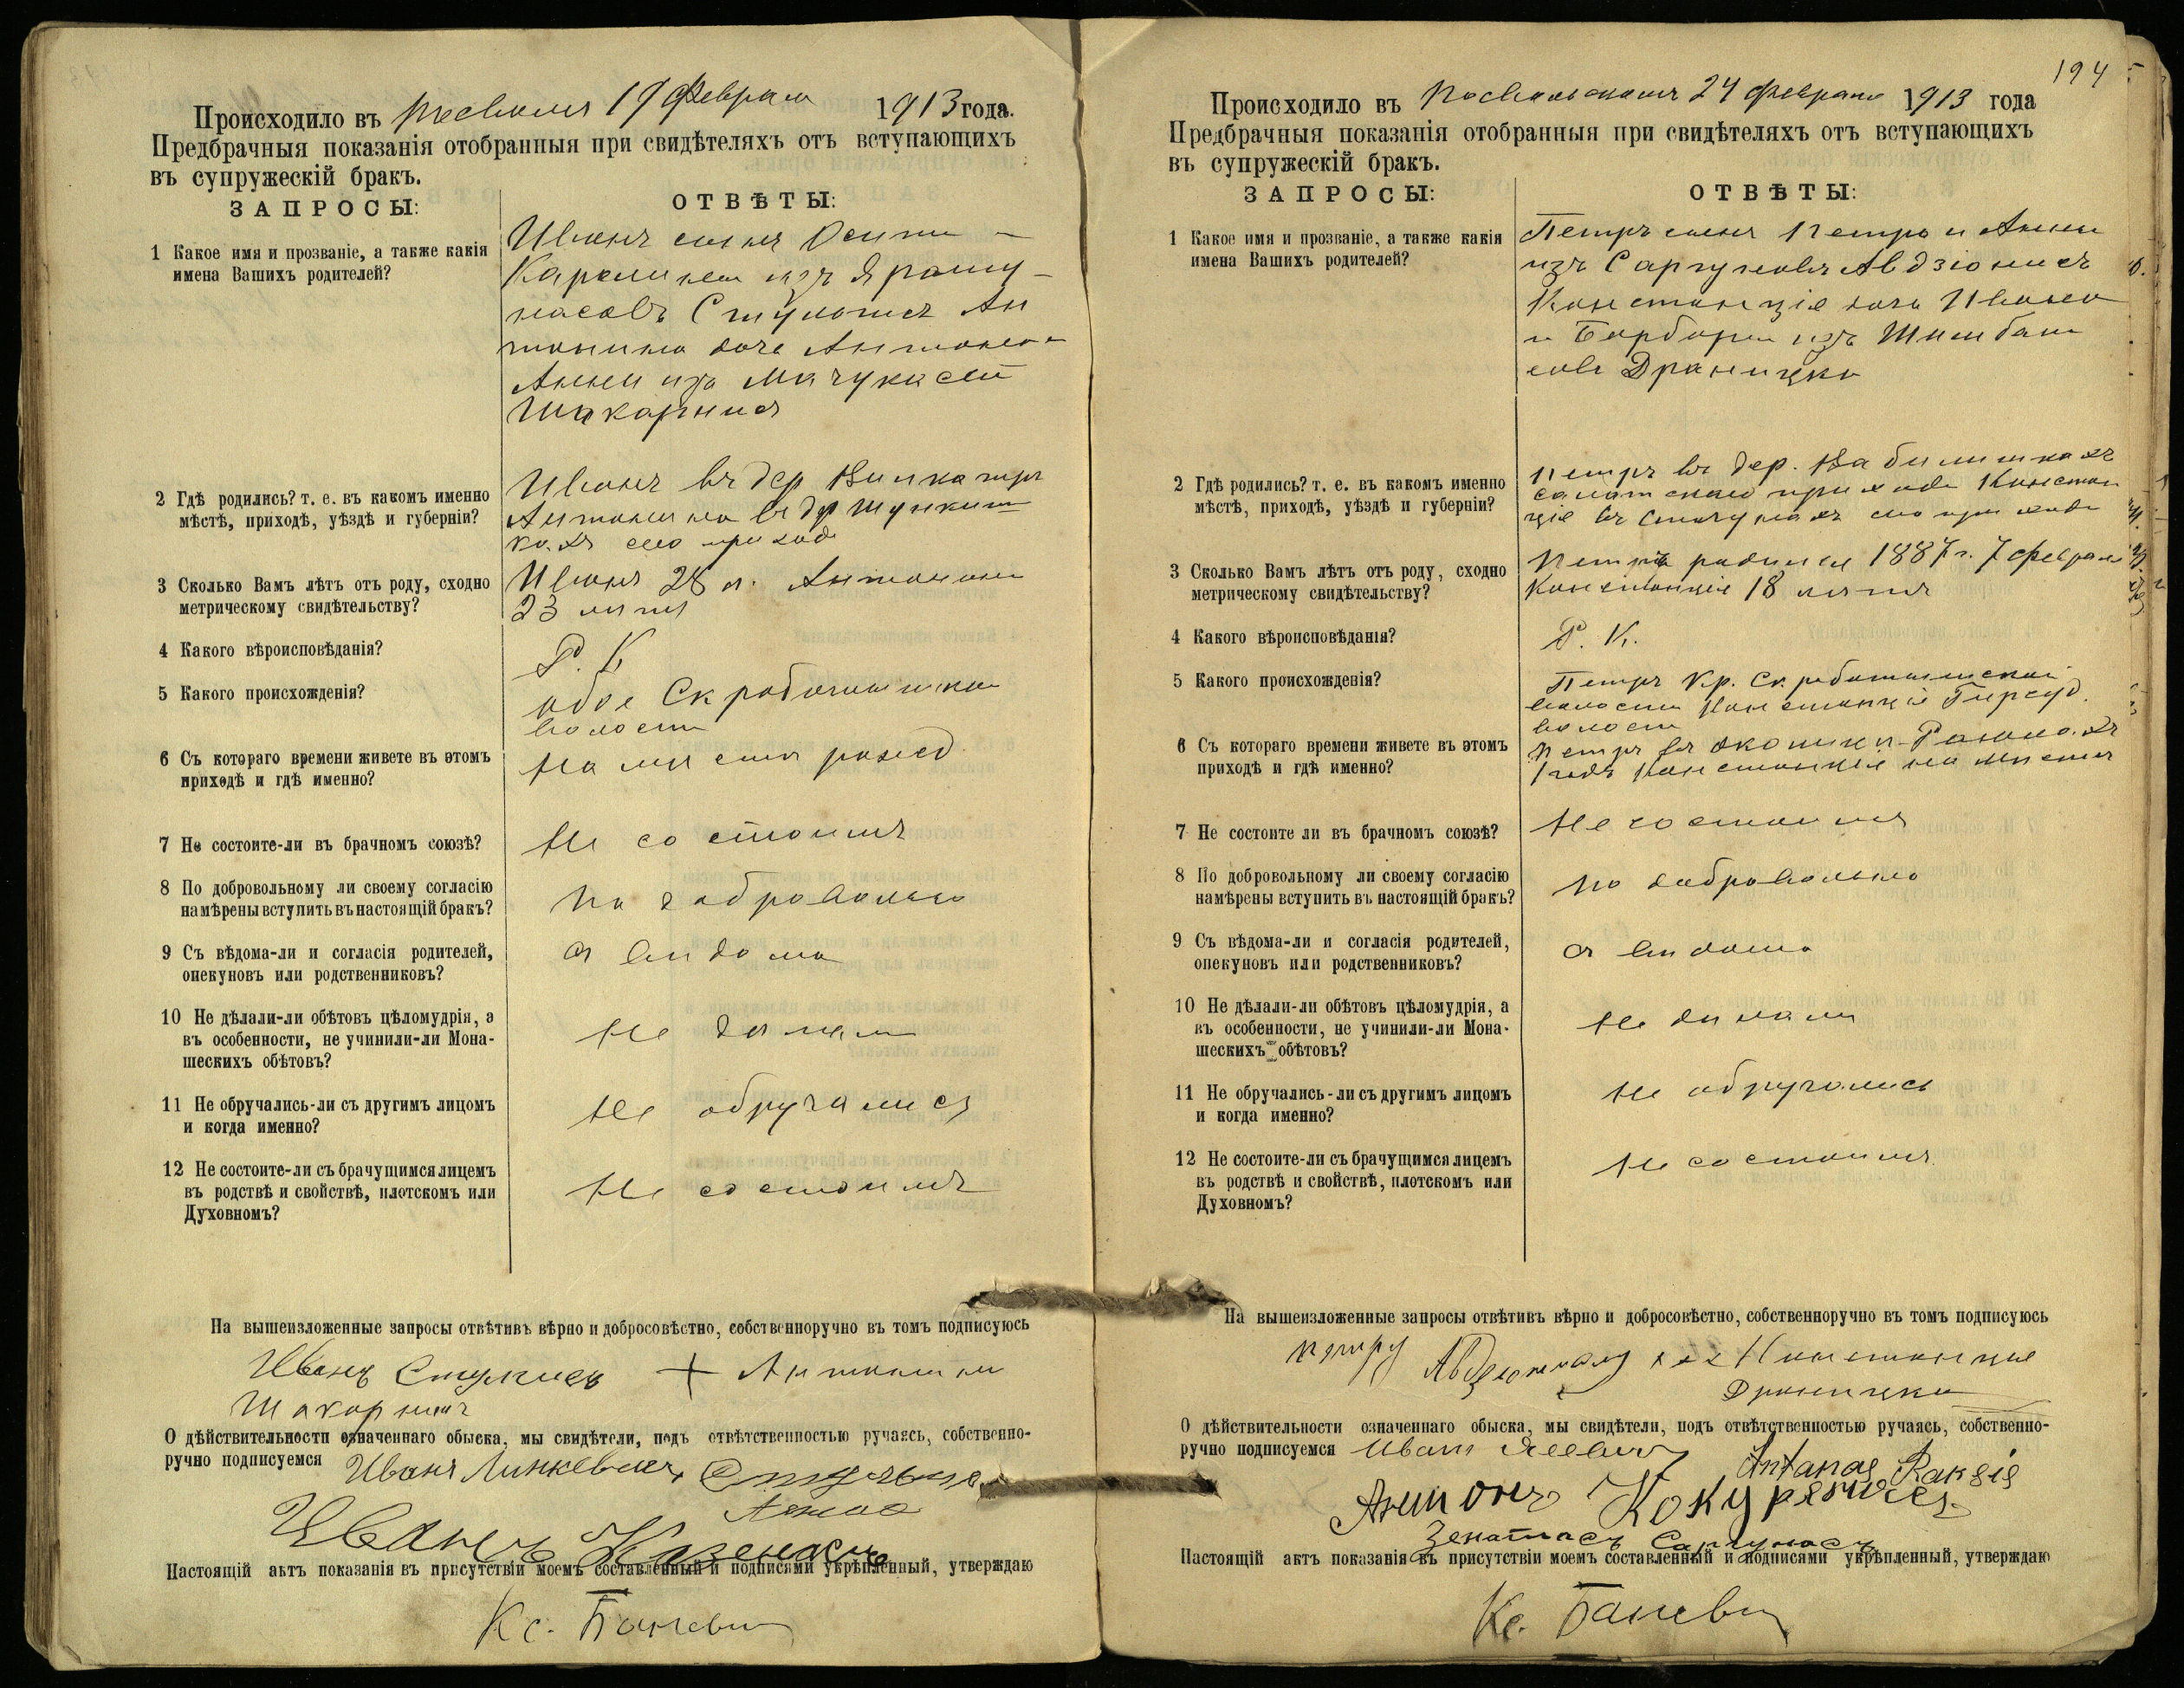 Происходило въ 19 Февраля 1913 года.
Предбрачныя показанія отобранныя при свидѣтеляхъ отъ вступающихъ
въ супружескій бракъ.
ЗАПРОСЫ:
ОТВѢТЫ:
1 Какое имя и прозваніе, а также какія
имена Вашихъ родителей?
Иванъ сынъ Осипа
Каролины изъ
Ан
тонина дочь Антона и
Анны изъ
2 Гдѣ родились? т. е. въ какомъ именно
мѣстѣ, приходѣ, уѣздѣ и губерніи?
Иванъ въ дер
Антонина въ др
сего прихода
3 Сколько Вамъ лѣтъ отъ роду, сходно
метрическому свидѣтельству?
Иванъ 28 л. Антонина
23 лѣтъ
4 Какого вѣроисповѣданія?
Р. К
5 Какого происхожденія?
обое
волости
6 Съ котораго времени живете въ этомъ
приходѣ и гдѣ именно?
На мѣстѣ рожд.
7 Не состоите-ли въ брачномъ союзѣ?
Не состоимъ
8 По добровольному ли своему согласію
намѣрены вступить въ настоящій бракъ?
По добровольно
9 Съ вѣдома-ли и согласія родителей,
опекуновъ или родственниковъ?
съ вѣдома
10 Не дѣлали-ли обѣтовъ цѣломудрія, а
въ особенности, не учинили-ли Мона-
шескихъ обѣтовъ?
Не дѣлали
11 Не обручались-ли съ другимъ лицомъ
и когда именно?
Не обручались
12 Не состоите-ли съ брачущимся лицемъ
въ родствѣ и свойствѣ, плотскомъ или
Духовномъ?
Не состоимъ
На вышеизложенные запросы отвѣтивъ вѣрно и добросовѣстно, собственноручно въ томъ подписуюсь
Иванъ + Антонина
О дѣйствительности означеннаго обыска, мы свидѣтели, подъ отвѣтственностью ручаясь, собственно-
ручно подписуемся Иванъ
Иванъ
Настоящій актъ показанія въ присутствіи моемъ составленный и подписями укрѣпленный, утверждаю
Кс. Баневи
194
Происходило въ 24 Февраля 1913 года
Предбрачныя показанія отобранныя при свидѣтеляхъ отъ вступающихъ
въ супружескій бракъ.
ЗАПРОСЫ:
ОТВѢТЫ:
1 Какое имя и прозваніе, а также какія
имена Вашихъ родителей?
Петръ сынъ Петра и Анны
изъ Саргуновъ Авдзіонисъ
Констанція дочь Ивана
и Барбары изъ
Драницка
2 Гдѣ родились? т. е. въ какомъ именно
мѣстѣ, приходѣ, уѣздѣ и губерніи?
Петръ въ дер.
прихода Констан
ція въ прихода
3 Сколько Вамъ лѣтъ отъ роду, сходно
метрическому свидѣтельству?
Петръ родился 1887 г. 7 февраля
Констанція 18 лѣтъ
4 Какого вѣроисповѣданія?
Р. К.
5 Какого происхожденія?
Петръ Кр.
волости Констанція
волости
6 Съ котораго времени живете въ этомъ
приходѣ и гдѣ именно?
Петръ въ
1 годъ Констанція на мѣстѣ
7 Не состоите ли въ брачномъ союзѣ?
Не состоимъ
8 По добровольному ли своему согласію
намѣрены вступить въ настоящій бракъ?
По добровольно
9 Съ вѣдома-ли и согласія родителей,
опекуновъ или родственниковъ?
съ вѣдома
10 Не дѣлали-ли обѣтовъ цѣломудрія, а
въ особенности, не учинили-ли Мона-
шескихъ обѣтовъ?
Не дѣлали
11 Не обручались-ли съ другимъ лицомъ
и когда именно?
Не обручались
12 Не состоите-ли съ брачущимся лицемъ
въ родствѣ и свойствѣ, плотскомъ или
Духовномъ?
Не состоимъ
На вышеизложенные запросы отвѣтивъ вѣрно и добросовѣстно, собственноручно въ томъ подписуюсь
xxx Констанція
Драницка
О дѣйствительности означеннаго обыска, мы свидѣтели, подъ отвѣтственностью ручаясь, собственно-
ручно подписуемся Иванъ
Antanas Raksis
Антонъ
Саргунасъ
Настоящій актъ показанія въ присутствіи моемъ составленный и подписями укрѣпленный, утверждаю
Кс. Баневи